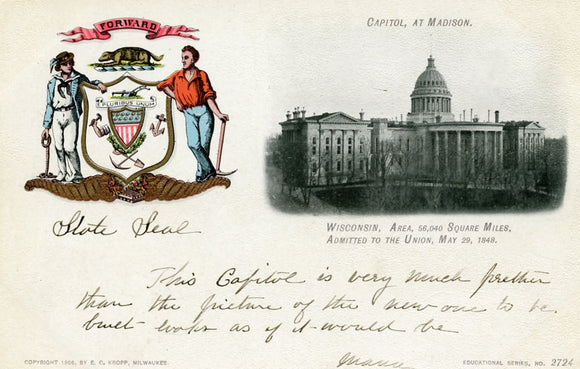 FORWARD
E PLURIBUS UNUM
State Seal
CAPITOL, AT MADISON.
WISCONSIN, AREA, 56,040 SQUARE MILES,
ADMITTED TO THE UNION, MAY 29, 1848.
This Capitol is very much prettier
than the picture of the new one to be
built looks as if it would be
COPYRIGHT 1906, BY E. C. KROPP, MILWAUKEE.
EDUCATIONAL SERIES, NO. 2724